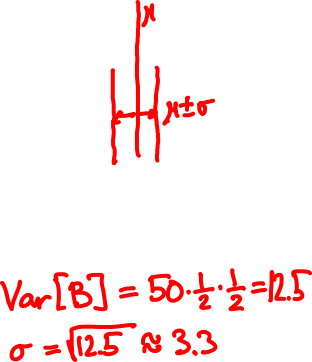 μ
μ±σ
Var[B] = 50·½·½ = 12.5
σ = √12.5 ≈ 3.3